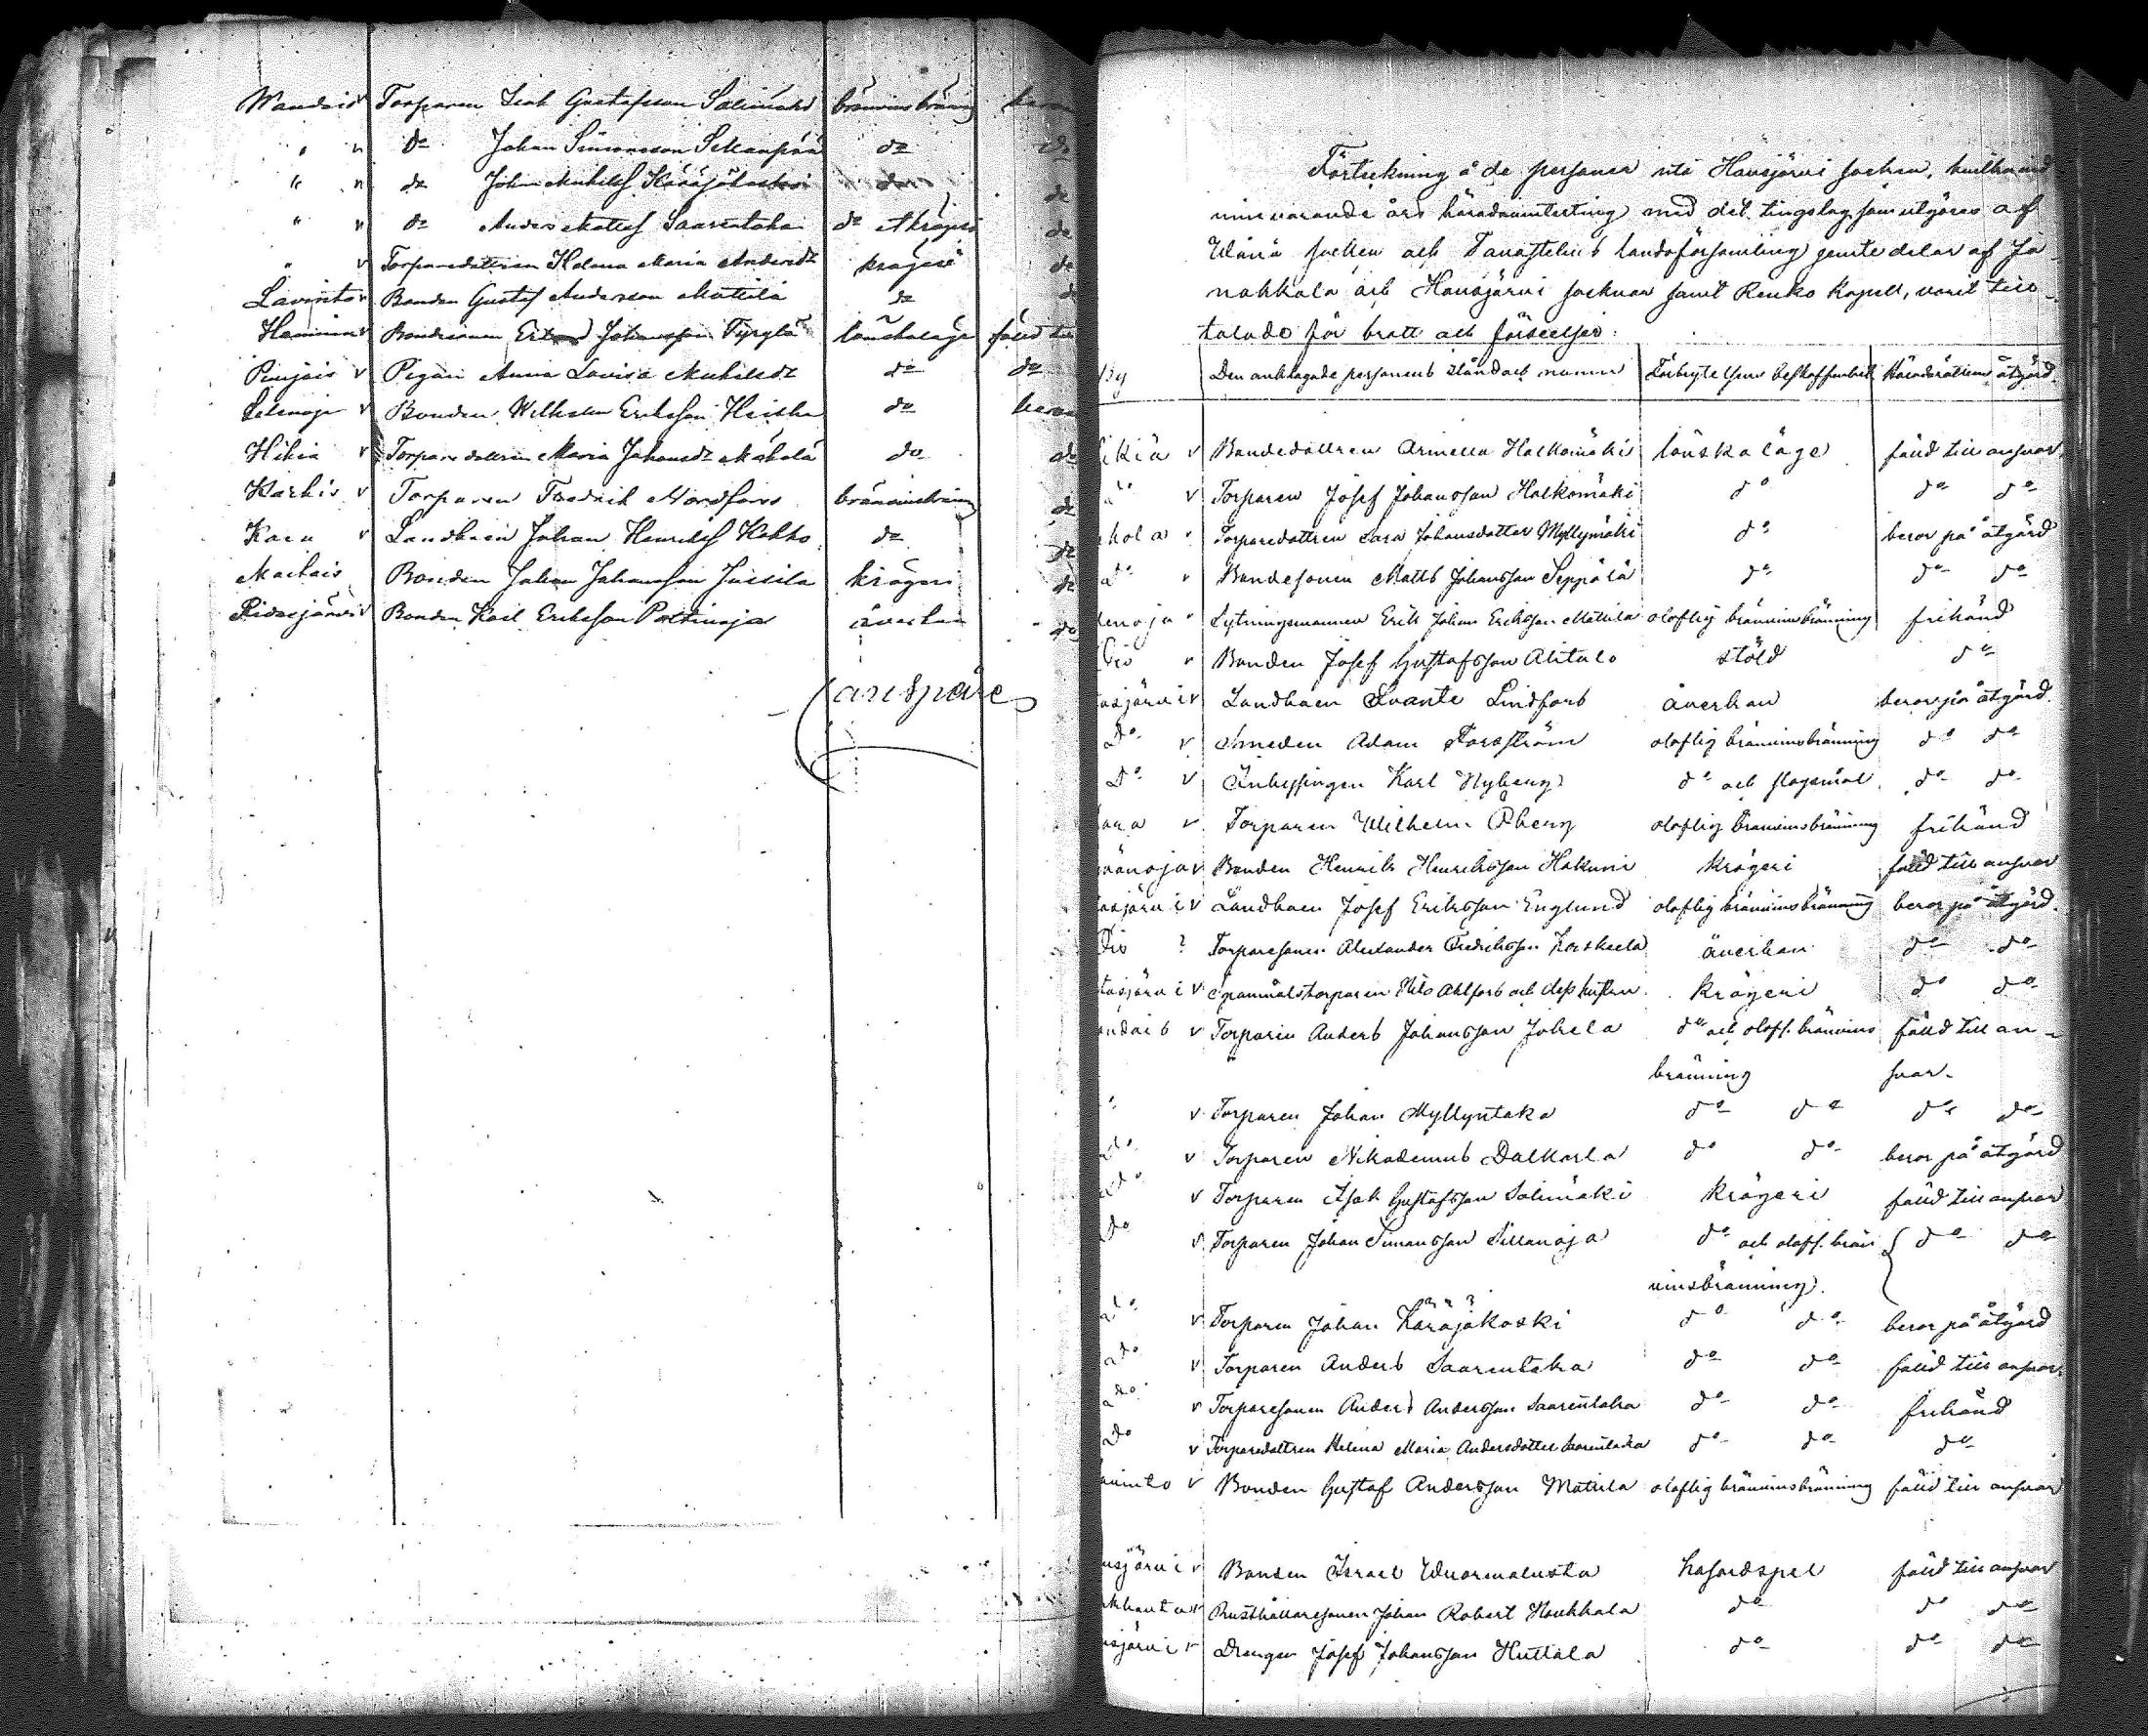 Wandais Torparen Isak Gustafsson Salimäki bränvinsbränng beror
" " do Johan Simonsson Sillanpää do do
" " do Johan Michelss Käräjäkoski do do
" " do Anders Mattss Saarentaka do o krögeri do
" v Torparedottren Helena Maria Andersdr krögeri do
Lavinto v Bonden Gustaf Andersson Mattila do do
Hamina v Bondesonen Johansson Tyrylä lönskaläge fälld till
Punjais v Pigan Anna Lovisa Michelsdr do do
Selenoja v Bonden Wilhelm Eriksson Heisku do beror
Hikiä v Torparedottren Maria Johansdr Mäkelä do do
Karhis v Torparen Fredrik Nordfors bränvinsbränng do
Kara v Landbon Johan Henrikss Kokko do do
Bonden Johan Johansson Jussila krögeri do
Ridasjärvi v Bonden Karl Eriksson åverkan do
Förtekning å de personer uti Hausjärvi socken, hvilka vid
innevarande års häradsvinterting med det tingslag som utgöres af
Wånå socken och Tavastehus landsförsamling jemte delar af Ja-
nakkala och Hausjärvi socknar samt Renko Kapell, varit till-
talade för brott och förseelser:
By Den anklagade personens stånd och namn Förbrytelsens beskaffenhet Häradsrättens åtgärd
ikiä v Bondedottren Armilla Halkomäki lönskaläge fälld till ansvar
do v Torparen Josef Johansson Halkomäki do do do
kola v Torparedottren Sara Johansdotter Myllymäki do beror på åtgärd
do v Bondesonen Matts Johansson Seppälä do do do
lenoja v Lytningsmannen Erik Johan Eriksson Mattila oloflig bränvinsbränning frikänd
Dio v Bonden Josef Gustafsson Alitalo stöld do
asjärvi v Landboen Svante Lindfors åverkan beror på åtgärd
Do v Smeden Adam Forsström oloflig bränvinsbränning do do
Do v Inhysingen Karl Nyberg do och slagsmål do do
ara v Torparen Wilhelm Öberg oloflig bränvinsbränning frikänd
äänoja v Bonden Henrik Henriksson Hakuni krögeri fälld till ansvar
asjärvi v Landboen Josef Eriksson Englund oloflig bränvinsbränning beror på åtgärd
Dio ? Torparesonen Alexander Fredriksson Koskela åverkan do do
tasjärvi v Spanmålstorparen Nils Ahlfors och dess hustru krögeri do do
andais v Torparen Anders Johansson Jokela do och olofl. bränvins fälld till an-
bränning svar.
v Torparen Johan Myllyntaka do do do do
do v Torparen Nikodemus Dalkarla do do beror på åtgärd
do v Torparen Isak Gustafsson Salimäki krögeri fälld till ansvar
do v Torparen Johan Simonsson Sillanoja do och olofl. brän do do
vinsbränning.
do v Torparen Johan Käräjäkoski do do beror på åtgärd
do v Torparen Anders Saarentaka do do fälld till ansvar.
do v Torparesonen Anders Andersson Saarentaka do do frikänd
do v Torparedottren Helena Maria Andersdotter Saarentaka do do do
avinto v Bonden Gustaf Andersson Mattila oloflig bränvinsbränning fälld till ansvar
usjärvi v Bonden Israel Wuorenalusta hasardspel fälld till ansvar
v Rusthållaresonen Johan Robert Houkkala do do do
usjärvi v Drengen Josef Johansson Huttala do do do